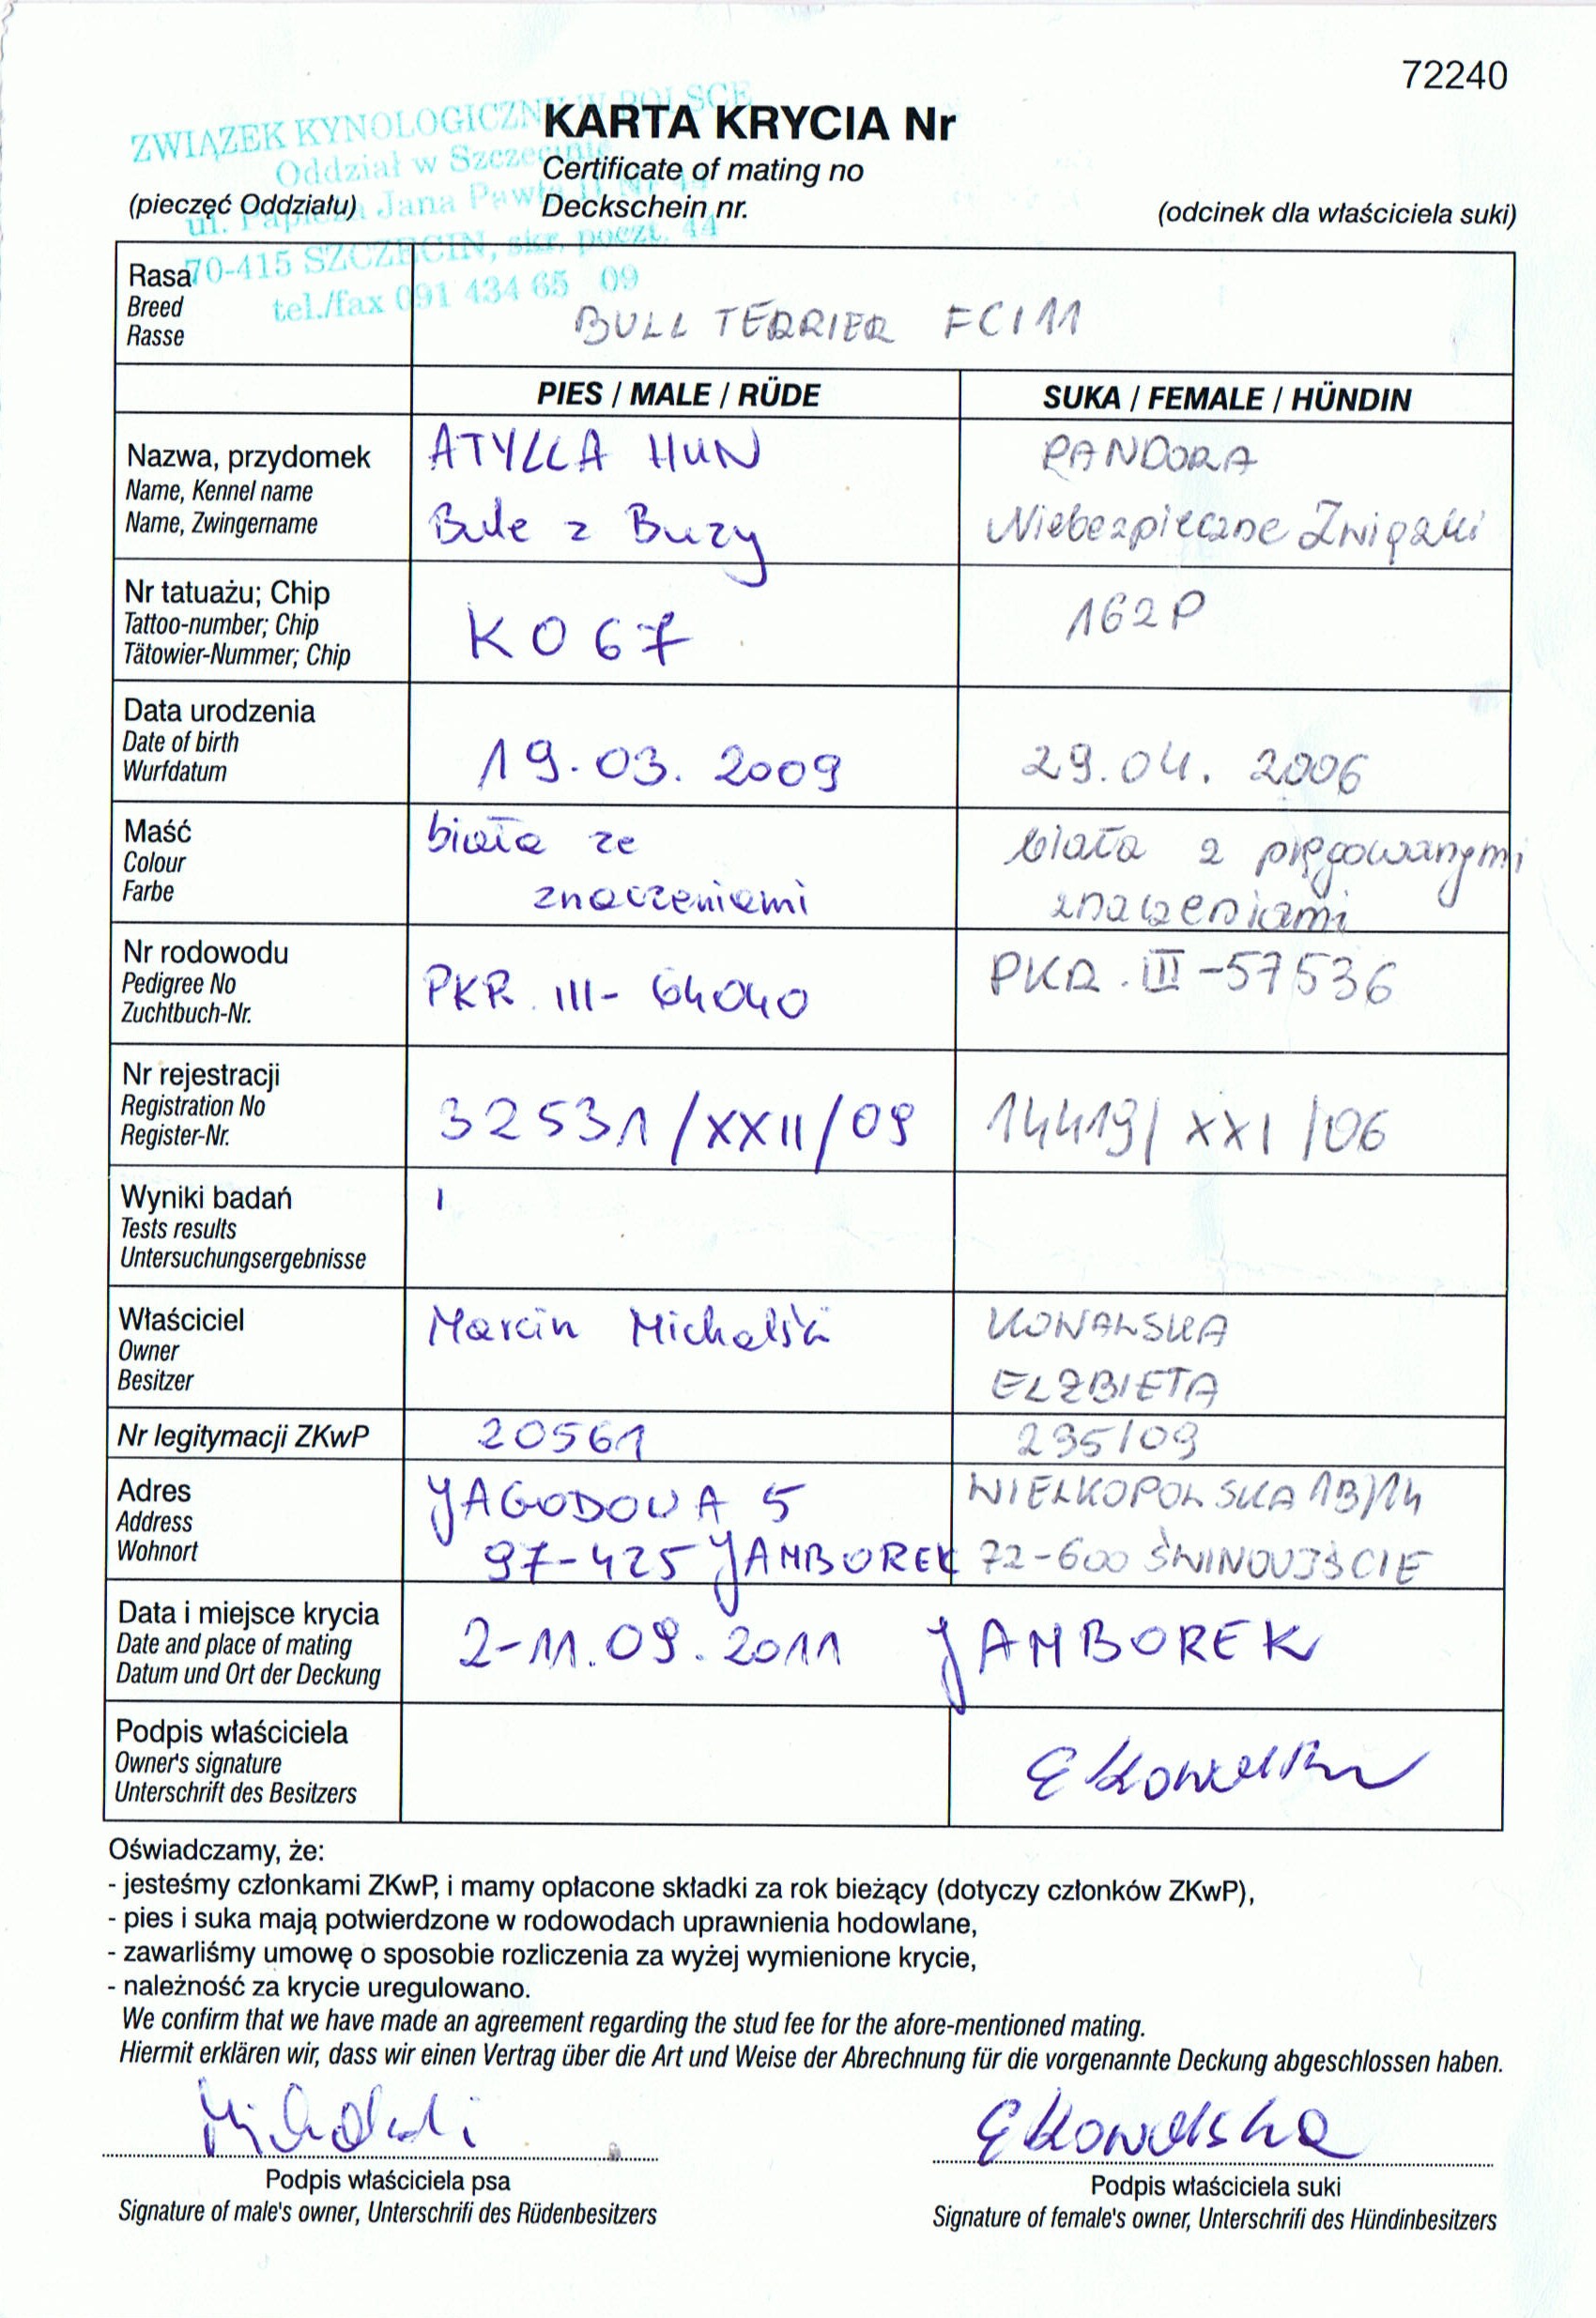 72240
ZWIĄZEK KYNOLOGICZNY W POLSCE
Oddział w Szczecinie
ul. Papieża Jana Pawła II Nr 44
70-415 SZCZECIN, skr. poczt. 44
tel./fax 091 434 65 09
KARTA KRYCIA Nr
Certificate of mating no
Deckschein nr.
(pieczęć Oddziału)
(odcinek dla właściciela suki)
Rasa
Breed
Rasse
BULL TERRIER FCI 11
PIES / MALE / RÜDE
SUKA / FEMALE / HÜNDIN
Nazwa, przydomek
Name, Kennel name
Name, Zwingername
ATYLLA HUN
Bule z Buzy
PANDORA
Niebezpieczne Związki
Nr tatuażu; Chip
Tattoo-number; Chip
Tätowier-Nummer; Chip
K067
162P
Data urodzenia
Date of birth
Wurfdatum
19.03.2009
29.04.2006
Maść
Colour
Farbe
biała ze
znaczeniami
biała z pręgowanymi
znaczeniami
Nr rodowodu
Pedigree No
Zuchtbuch-Nr.
PKR. III- 64040
PKR. III-57536
Nr rejestracji
Registration No
Register-Nr.
32531/XXII/09
14419/XXI/06
Wyniki badań
Tests results
Untersuchungsergebnisse
Właściciel
Owner
Besitzer
Marcin Michalski
KOWALSKA
ELŻBIETA
Nr legitymacji ZKwP
20561
295/09
Adres
Address
Wohnort
JAGODOWA 5
97-425 JAMBOREK
WIELKOPOLSKA 13/14
72-600 ŚWINOUJŚCIE
Data i miejsce krycia
Date and place of mating
Datum und Ort der Deckung
2-11.09.2011 JAMBOREK
Podpis właściciela
Owner's signature
Unterschrift des Besitzers
E Kowalska
Oświadczamy, że:
- jesteśmy członkami ZKwP, i mamy opłacone składki za rok bieżący (dotyczy członków ZKwP),
- pies i suka mają potwierdzone w rodowodach uprawnienia hodowlane,
- zawarliśmy umowę o sposobie rozliczenia za wyżej wymienione krycie,
- należność za krycie uregulowano.
We confirm that we have made an agreement regarding the stud fee for the afore-mentioned mating.
Hiermit erklären wir, dass wir einen Vertrag über die Art und Weise der Abrechnung für die vorgenannte Deckung abgeschlossen haben.
Michalski
E Kowalska
Podpis właściciela psa
Signature of male's owner, Unterschrifi des Rüdenbesitzers
Podpis właściciela suki
Signature of female's owner, Unterschrifi des Hündinbesitzers